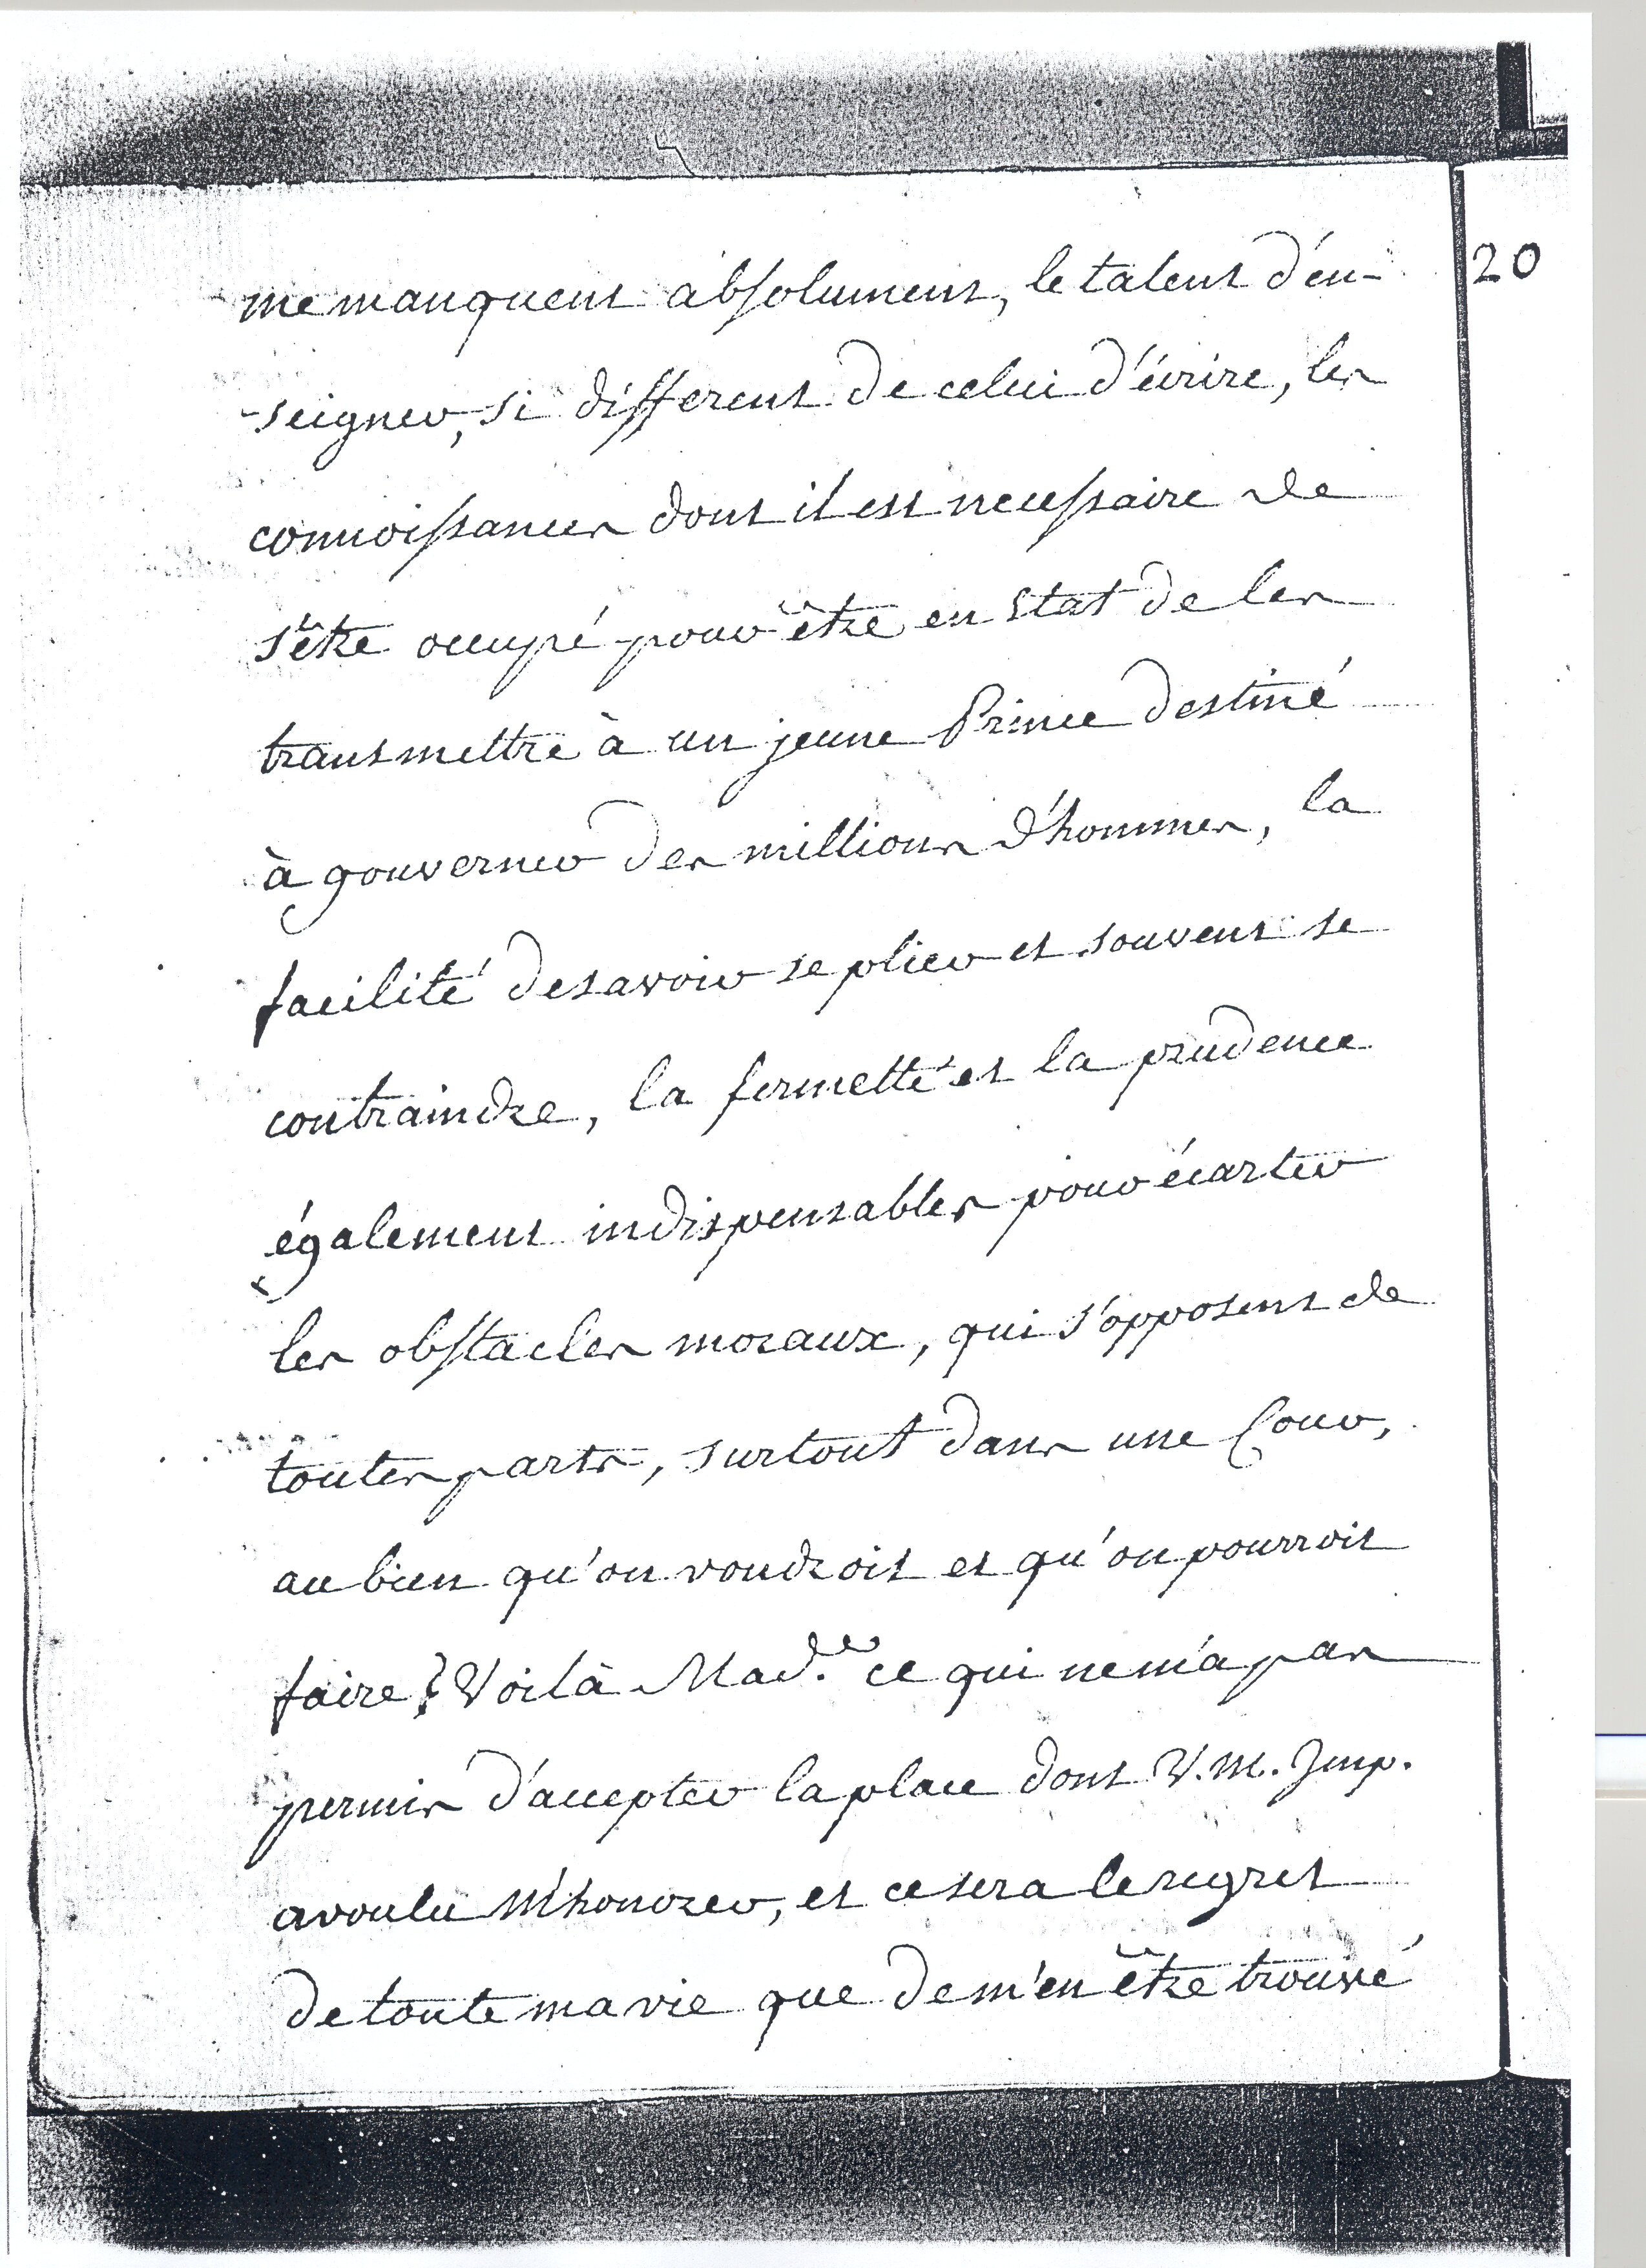 20
me manquent absolument, le talent d'en-
-seigner, si different de celui d'écrire, les
connoissances dont il est necessaire de
s'être occupé pour être en Etat de les
transmettre à un jeune Prince destiné
à gouverner des millions d'hommes, la
facilité de savoir se plier et souvent se
contraindre, la fermetté et la prudence
également indispensables pour écarter
les obstacles moraux, qui s'opposent de
toutes parts, surtout dans une Cour,
au bien qu'on voudroit et qu'on pourroit
faire? Voilà Mad.e ce qui ne m'a pas
permis d'accepter la place dont V. M. Imp.
a voulu M'honorer, et ce sera le regret
de toute ma vie que de m'en être trouvé